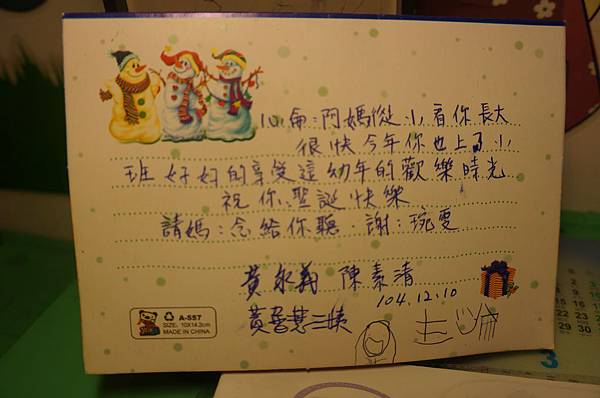 心侖:阿媽從小看你長大
很快今年你也上了小
班好好的享受這幼年的歡樂時光
祝你聖誕快樂
請媽:念給你聽.謝:琬雯
黃永義 陳素清
104.12.10
三姨
A-557
SIZE: 10X14.2cm
MADE IN CHINA
3